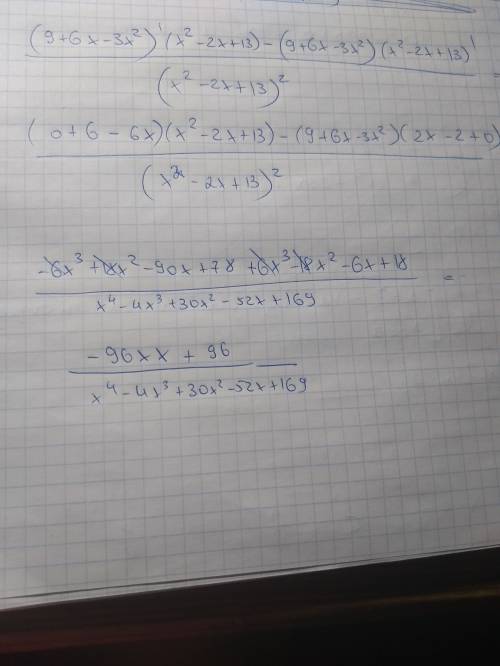 (9+6x-3x²)'(x²-2x+13)-(9+6x-3x²)(x²-2x+13)'
(x²-2x+13)² =
(0+6-6x)(x²-2x+13)-(9+6x-3x²)(2x-2+0)
(x²-2x+13)²
-6x³+18x²-90x+78+6x³-18x²-6x+18
x⁴-4x³+30x²-52x+169 =
-96xx+96
x⁴-4x³+30x²-52x+169